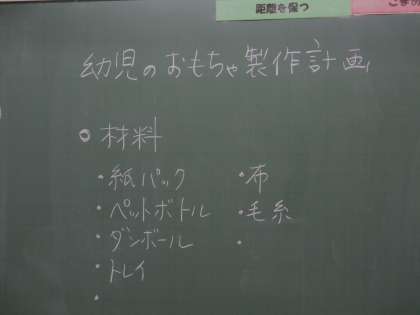 距離を保つ
幼児のおもちゃ製作計画
材料
・紙パック
・ペットボトル
・ダンボール
・トレイ
・
・布
・毛糸
・